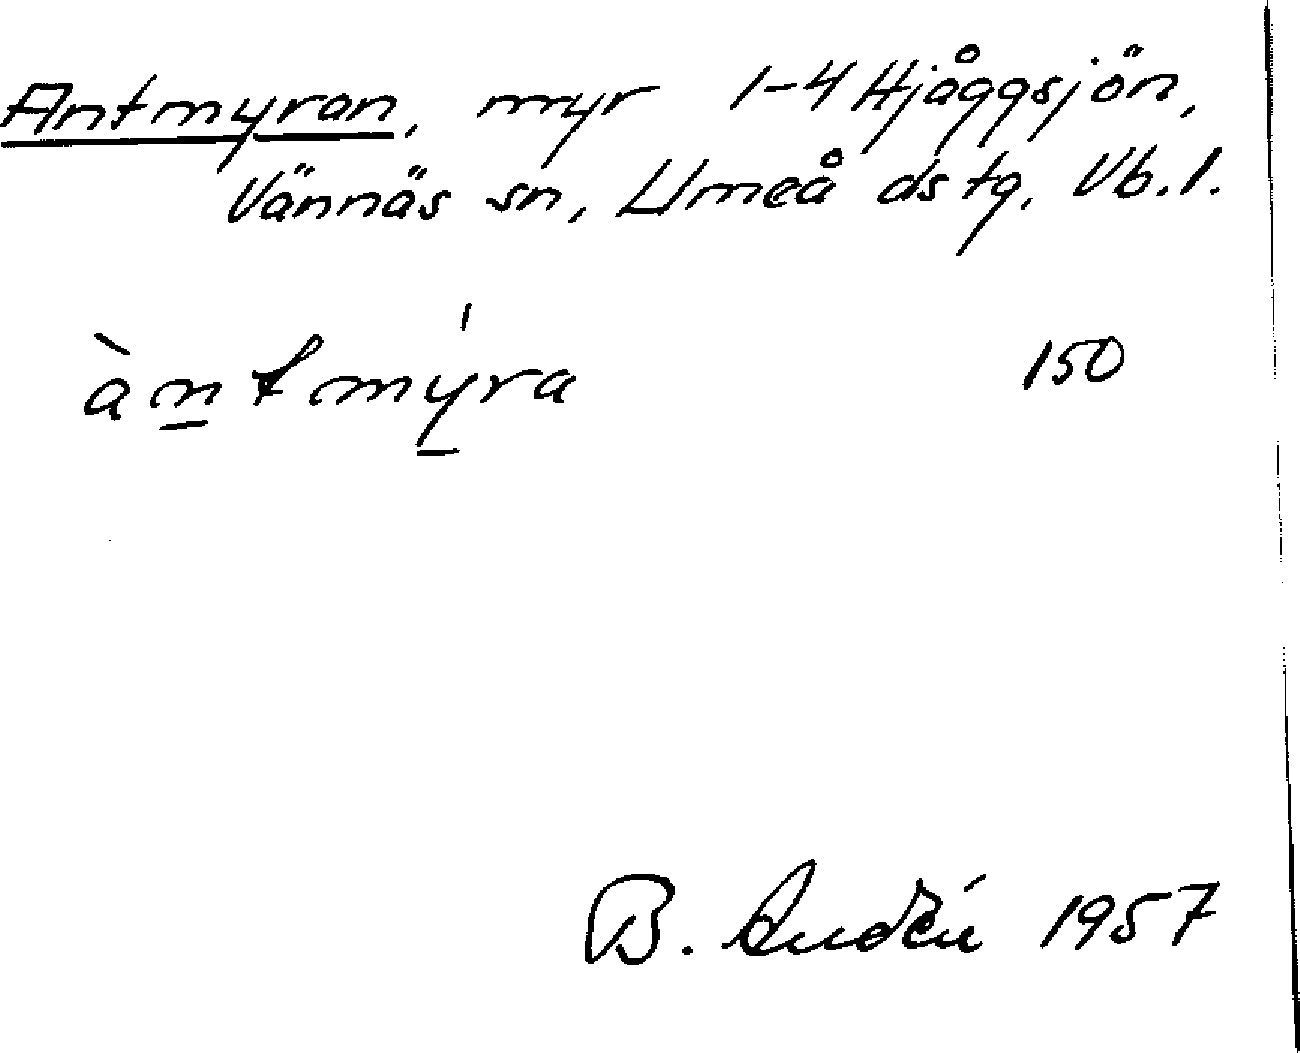 Antmyran, myr 1-4 Hjåggsjön,
Vännäs sn, Umeå dstg, Vb. l.
àntmýra 150
B. 1957